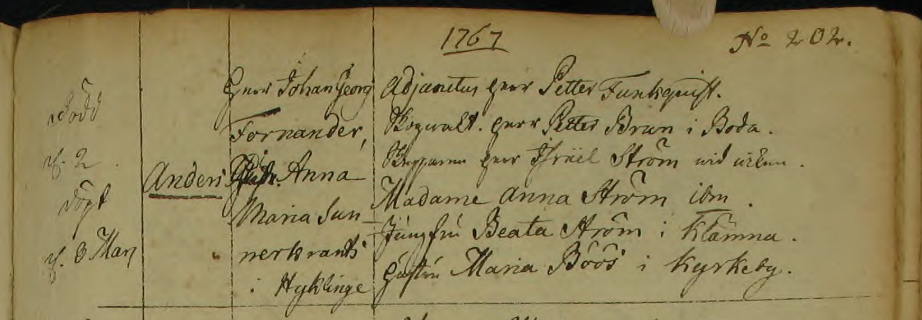 1767
No 202.
Född
d. 2.
döpt
d. 3 Marj
Anders
Herr Johan Georg
Fornander,
Anna
Maria Sun-
nerkrants
i Hyklinge
Adjunctus Herr Petter Funkquist.
Herr Petter Brun i Boda.
Herr Israël Ström wid
Madame Anna Ström ibm.
Jungfru Beata Ström i Klämna.
Maria Böös i Kyrkeby.